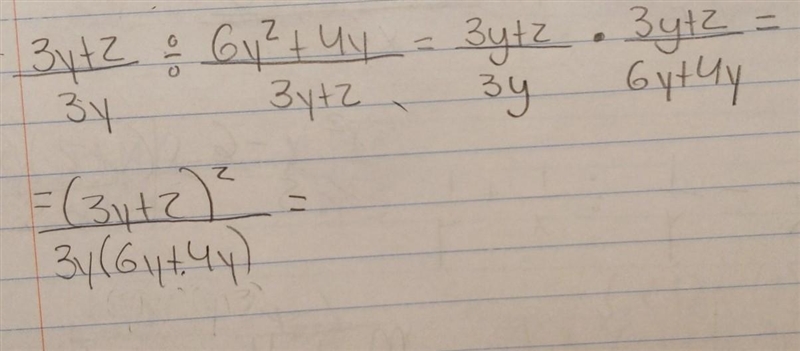 (3y+2)/(3y) ÷ (6y²+4y)/(3y+2) = (3y+2)/(3y) · (3y+2)/(6y+4y) =
= (3y+2)²/(3y(6y+4y)) =